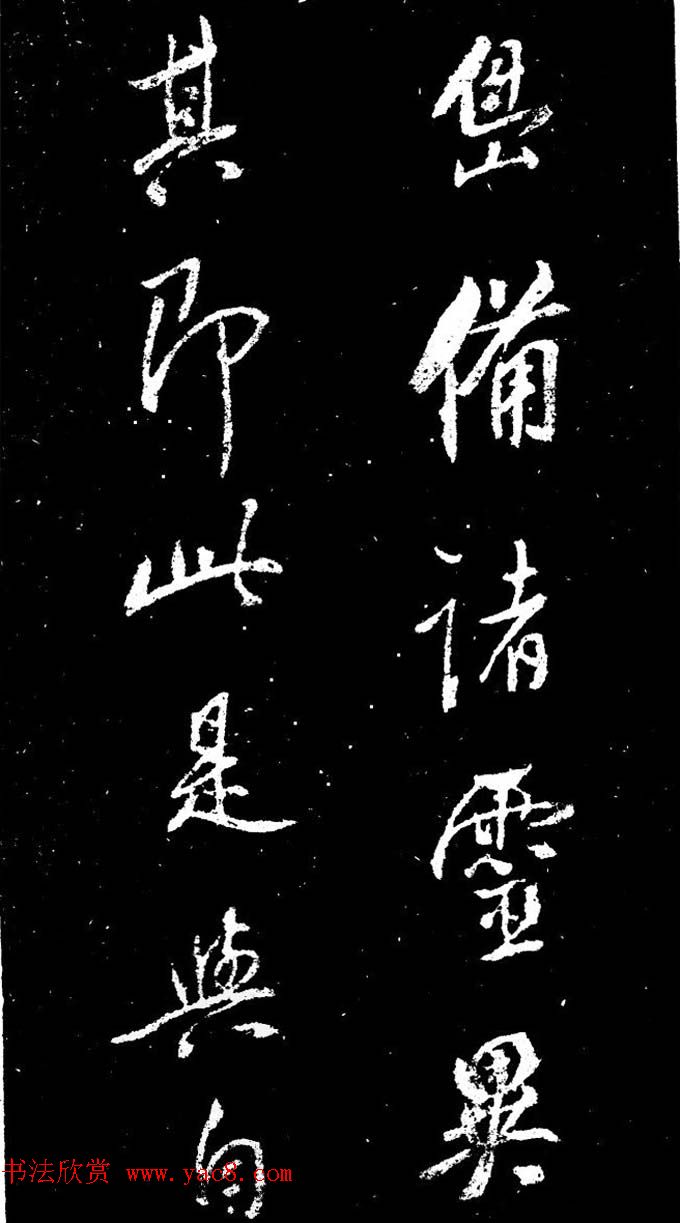 備諸靈異
其即此是與自
书法欣赏 www.yac8.com